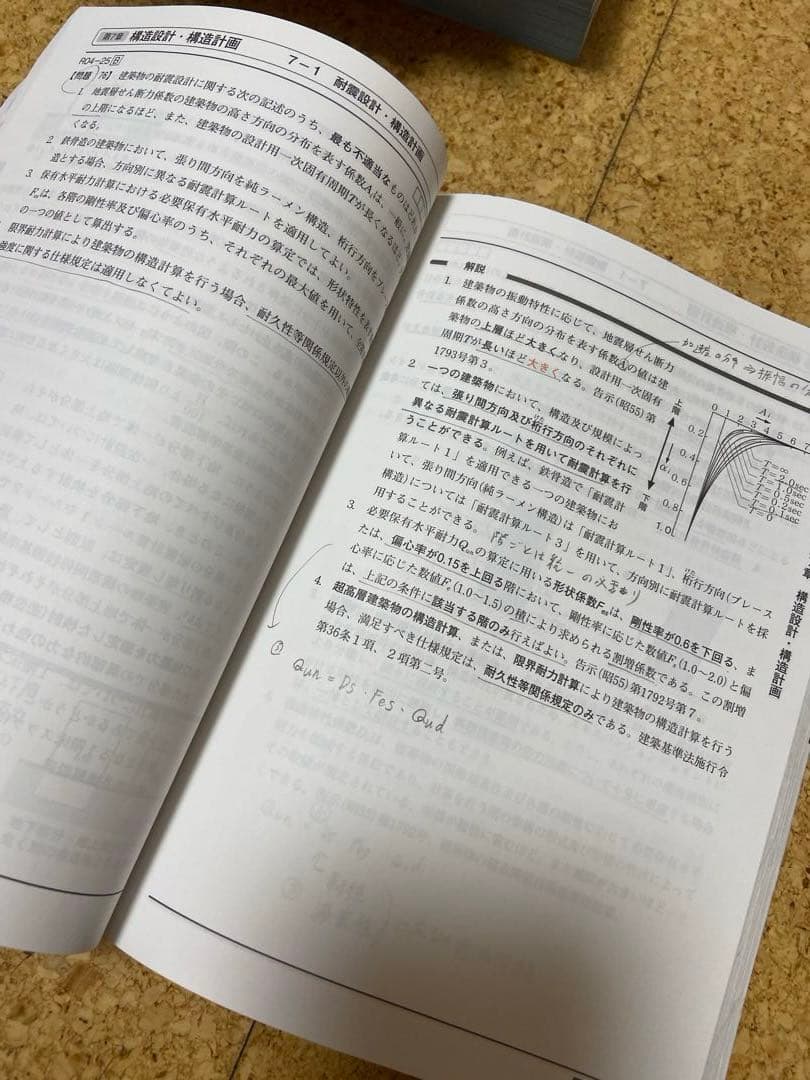 第7章 構造設計・構造計画
7－1 耐震設計・構造計画
R04－25
【問題 76】建築物の耐震設計に関する次の記述のうち、最も不適当なものはどれ
1. 地震層せん断力係数の建築物の高さ方向の分布を表す係数Aiは、一般に、
の上階になるほど、また、建築物の設計用一次固有周期Tが長くなるほど、
くなる。
2. 鉄骨造の建築物において、張り間方向を純ラーメン構造、桁行方向をブレー
造とする場合、方向別に異なる耐震計算ルートを適用してよい。
3. 保有水平耐力計算における必要保有水平耐力の算定では、形状特性を表す
Fesは、各階の剛性率及び偏心率のうち、それぞれの最大値を用いて、
の一つの値として算出する。
限界耐力計算により建築物の構造計算を行う場合、耐久性等関係規定以外の
強度に関する仕様規定は適用しなくてよい。
解説
1. 建築物の振動特性に応じて、地震層せん断力
係数の高さ方向の分布を表す係数Aiの値は建
築物の上層ほど大きくなり、設計用一次固有
周期Tが長いほど大きくなる。告示(昭55)第
1793号第3。
2. 一つの建築物において、構造及び規模によっ
ては、張り間方向及び桁行方向のそれぞれに
異なる耐震計算ルートを用いて耐震計算を行
うことができる。例えば、鉄骨造で「耐震計
算ルート1」を適用できる一つの建築物にお
いて、張り間方向(純ラーメン構造)は「耐震計算ルート1」、桁行方向(ブレース
構造)については「耐震計算ルート3」を用いて、方向別に耐震計算ルートを採
用することができる。
3. 必要保有水平耐力Qunの算定に用いる形状係数Fesは、剛性率が0.6を下回る、ま
たは、偏心率が0.15を上回る階において、剛性率に応じた数値Fs(1.0～2.0)と偏
心率に応じた数値Fe(1.0～1.5)の積により求められる割増係数である。この割増
は、上記の条件に該当する階のみ行えばよい。告示(昭55)第1792号第7。
4. 超高層建築物の構造計算、または、限界耐力計算により建築物の構造計算を行う
場合、満足すべき仕様規定は、耐久性等関係規定のみである。建築基準法施行令
第36条1項、2項第二号。
Qun = Ds・Fes・Qud
Ai
0 1 2 3 4 5 6 7
上階
αi
下階
0.2
0.4
0.6
0.8
1.0
T=∞
T=2.0sec
T=1.0sec
T=0.5sec
T=0.2sec
T=0.1sec
T=0
構造設計・構造計画